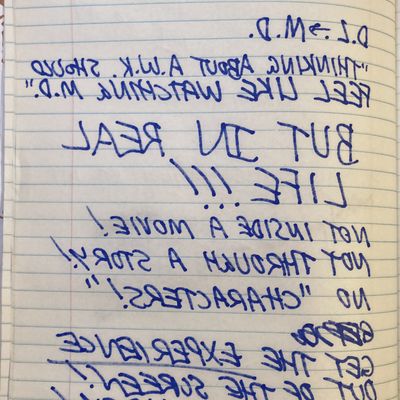 D.L → M.D.
"THINKING ABOUT A.W.K. SHOULD
FEEL LIKE WATCHING M.D."
BUT IN REAL
LIFE!!!
NOT INSIDE A MOVIE!
NOT THROUGH A STORY!
NO "CHARACTERS!"
GET THE EXPERIENCE
OUT OF THE SCREEN!